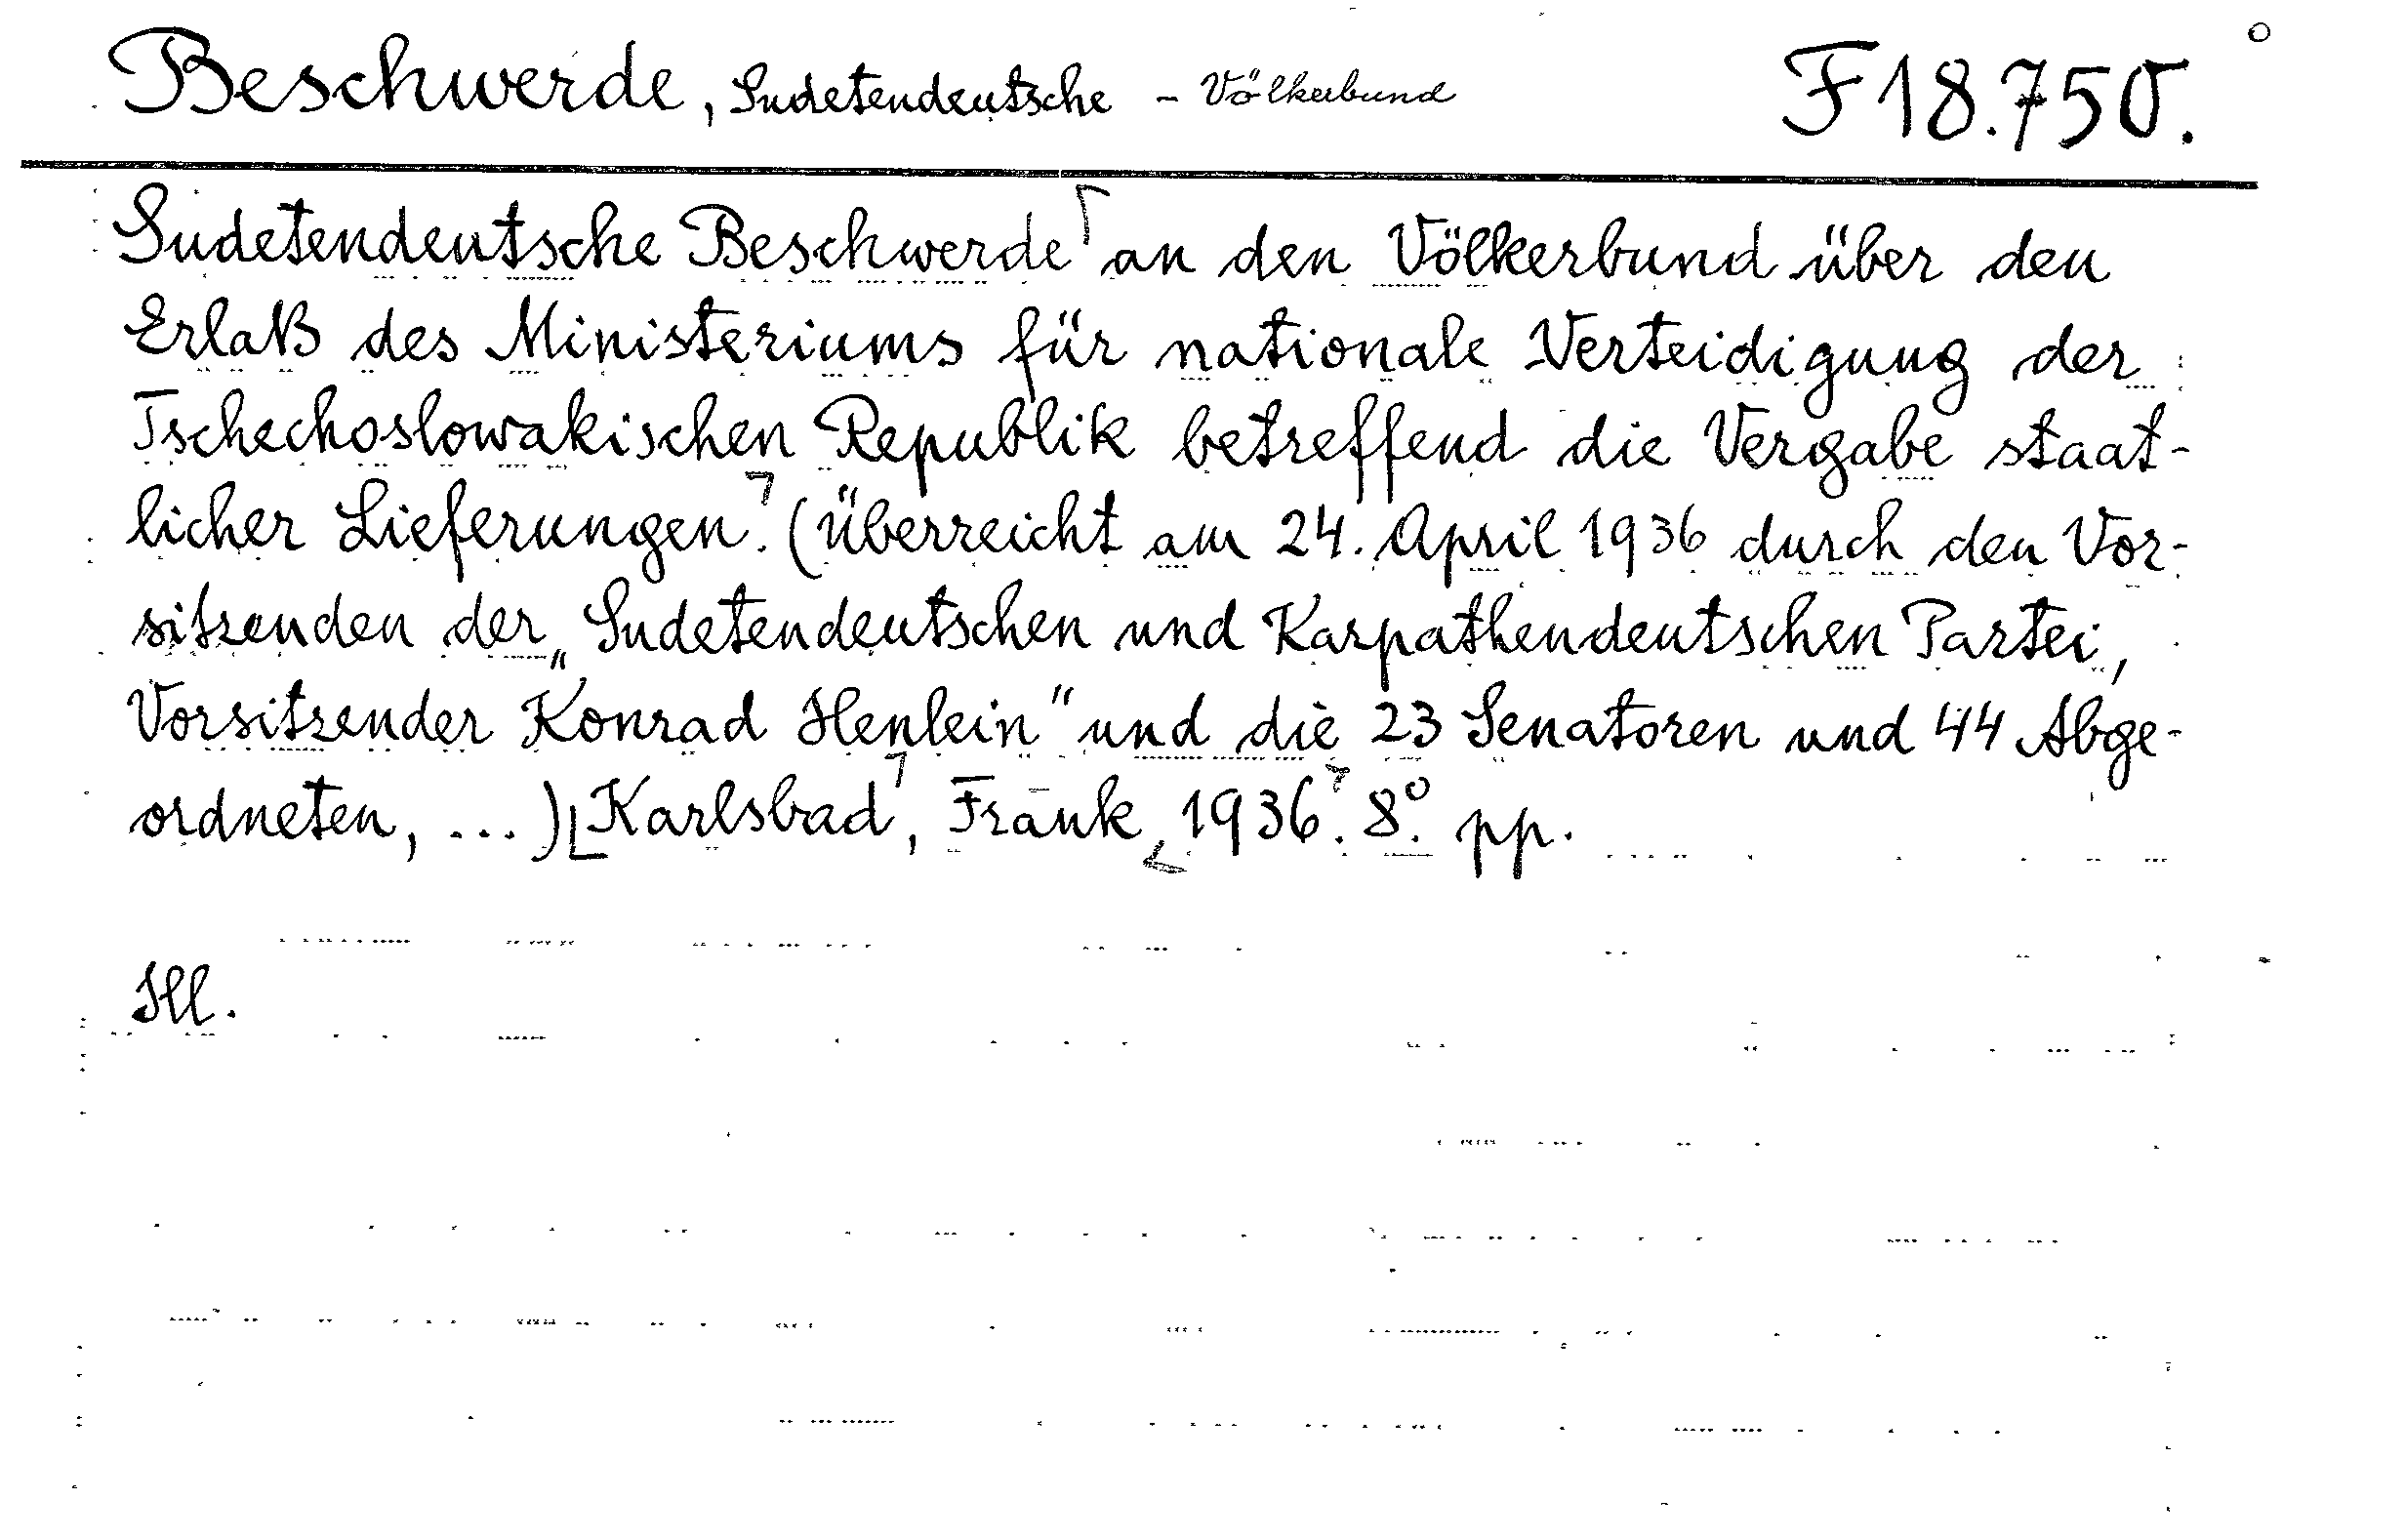 Beschwerde, Sudetendeutsche - Völkerbund F 18.750.
Sudetendeutsche Beschwerde⌈ an den Völkerbund über den
Erlaß des Ministeriums für nationale Verteidigung der
Tschechoslowakischen Republik betreffend die Vergabe staat-
licher Lieferungen⌉. (Überreicht am 24. April 1936 durch den Vor-
sitzenden der „Sudetendeutschen und Karpathendeutschen Partei,
Vorsitzender Konrad Henlein" und die 23 Senatoren und 44 Abge-
ordneten, ...) ⌊Karlsbad⌉, Frank, ⌊1936⌉. 8°. pp.
Ill.